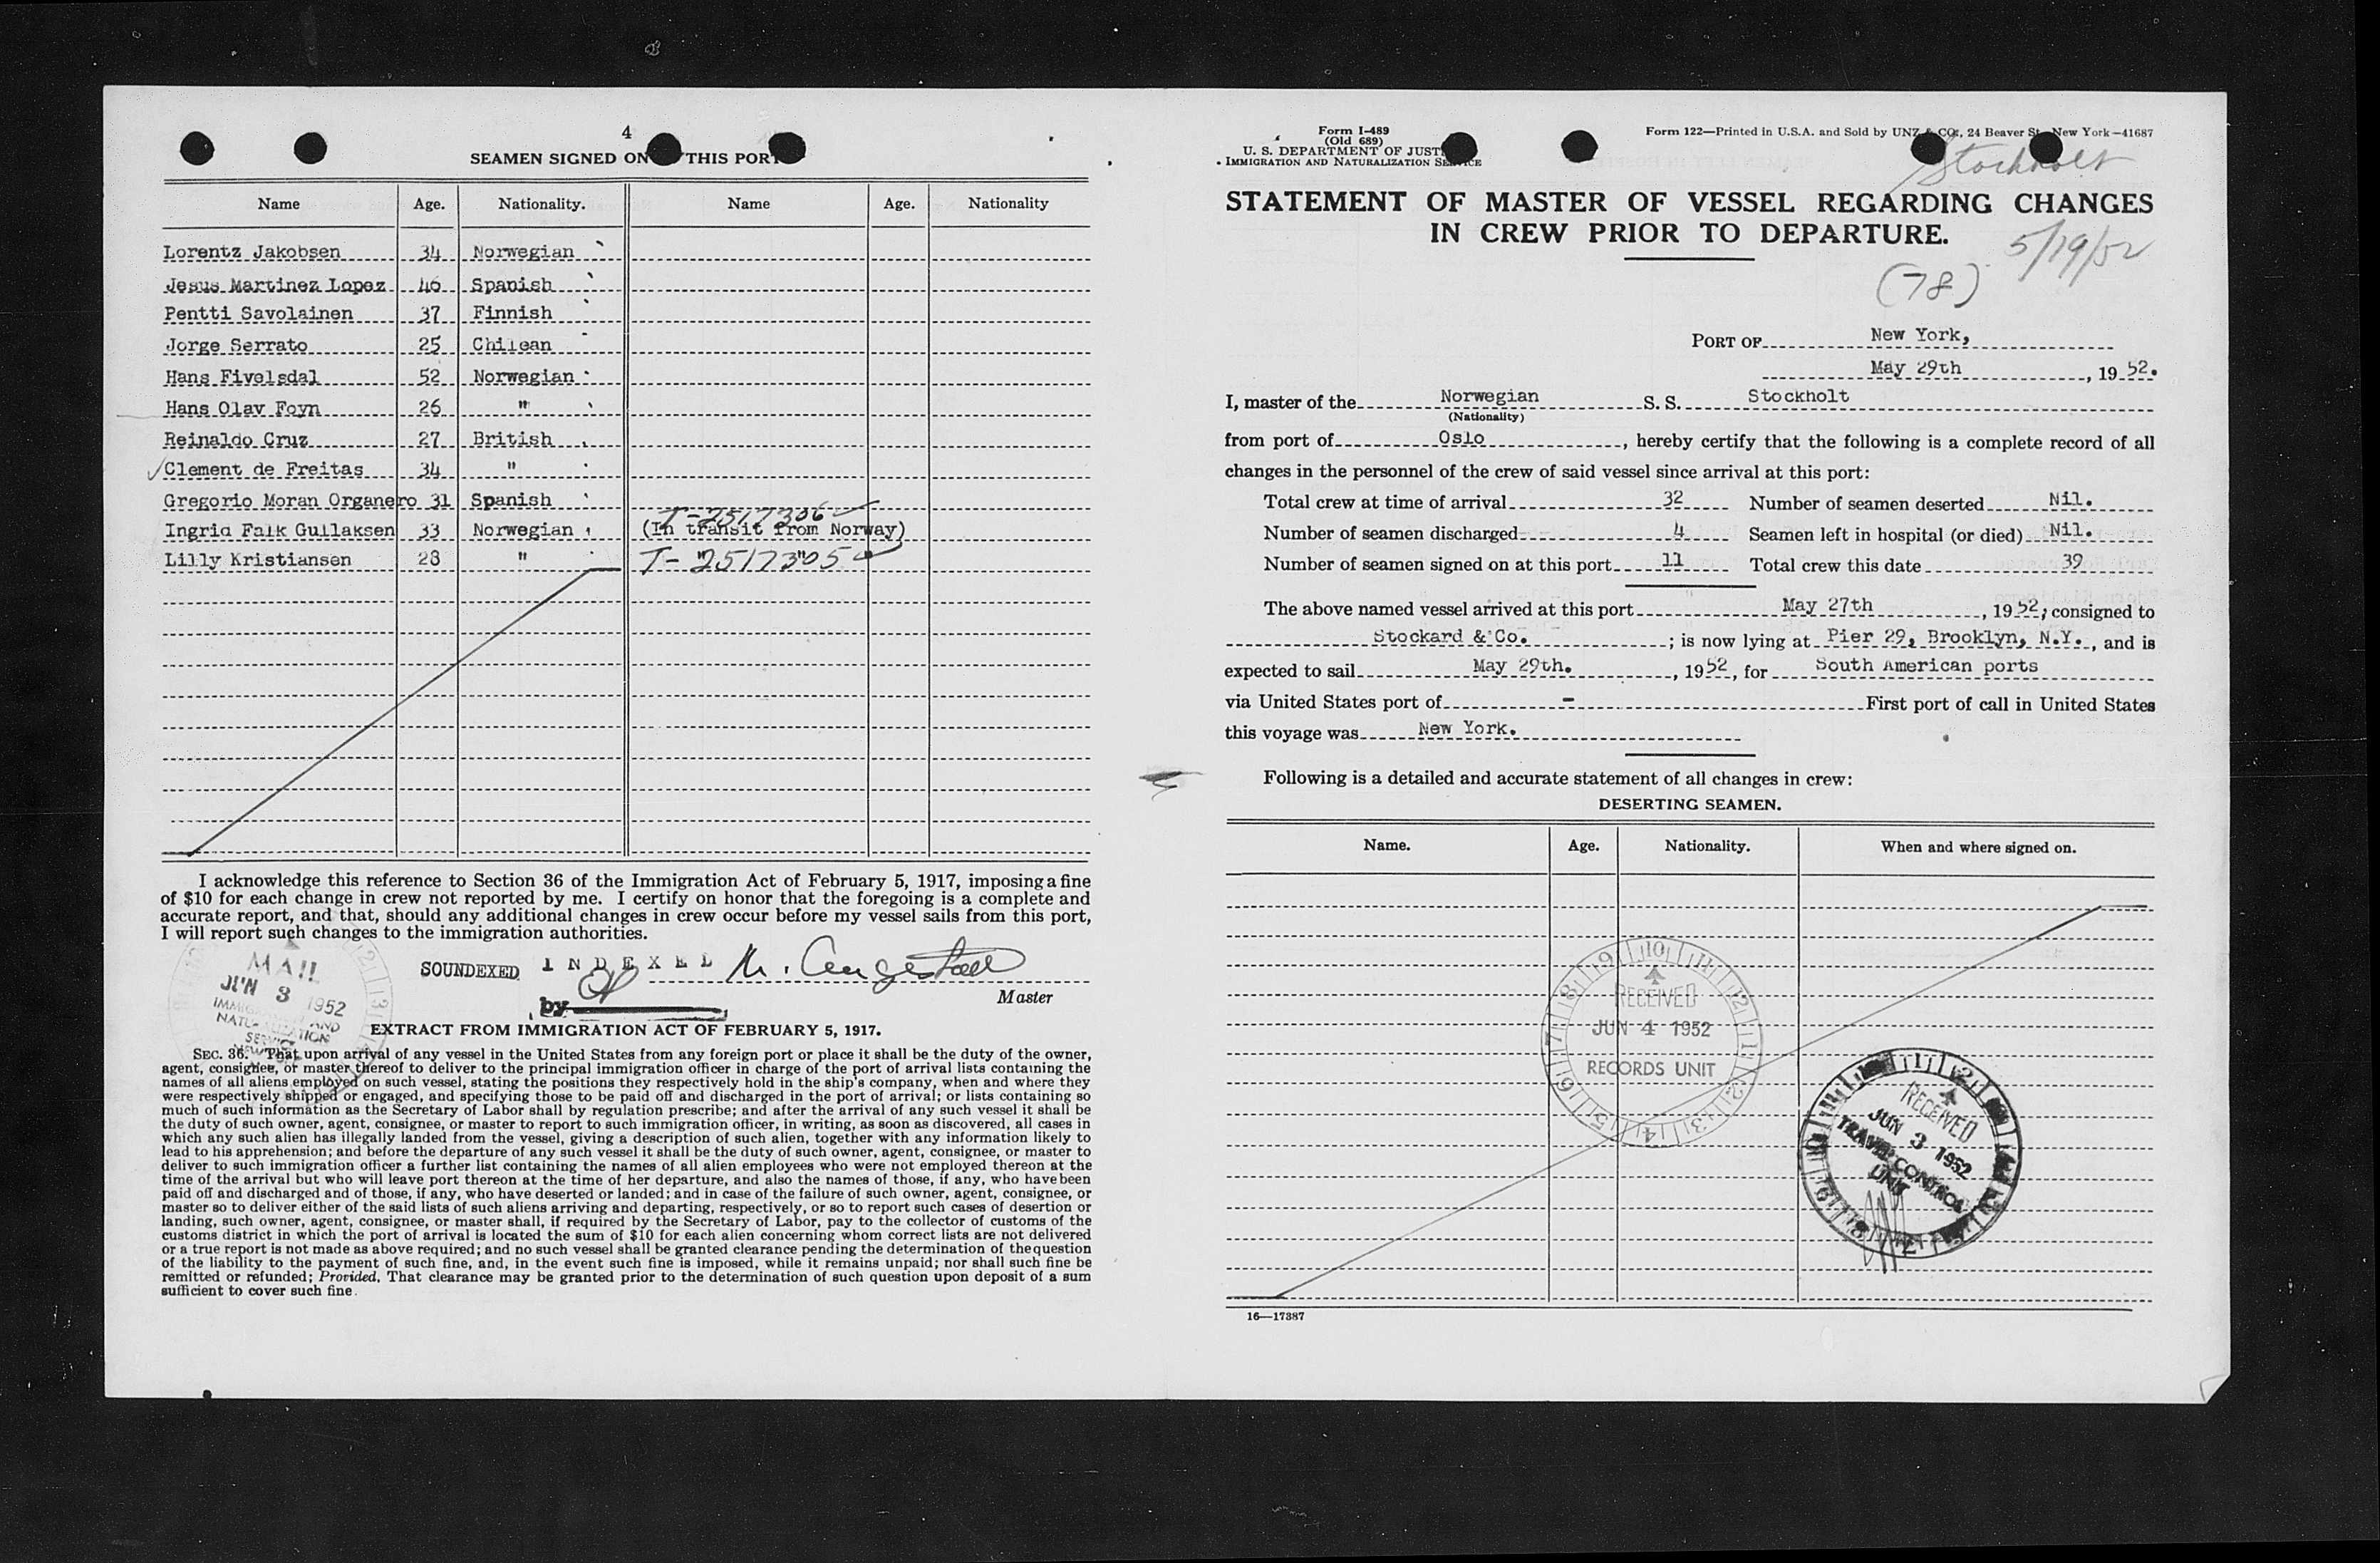 4
SEAMEN SIGNED ON THIS PORT
Name Age. Nationality. Name Age. Nationality
Lorentz Jakobsen 34 Norwegian
Jesus Martinez Lopez 46 Spanish
Pentti Savolainen 37 Finnish
Jorge Serrato 25 Chilean
Hans Fivelsdal 52 Norwegian
Hans Olav Foyn 26 "
Reinaldo Cruz 27 British
Clement de Freitas 34 "
Gregorio Moran Organero 31 Spanish
T-2517306
Ingrid Falk Gullaksen 33 Norwegian (In transit from Norway)
Lilly Kristiansen 28 " " T-2517305
I acknowledge this reference to Section 36 of the Immigration Act of February 5, 1917, imposing a fine
of $10 for each change in crew not reported by me. I certify on honor that the foregoing is a complete and
accurate report, and that, should any additional changes in crew occur before my vessel sails from this port,
I will report such changes to the immigration authorities.
MAIL
JUN 3 1952
IMMIGRATION AND
NATURALIZATION
SERVICE
SOUNDEXED INDEXED
by
Master
EXTRACT FROM IMMIGRATION ACT OF FEBRUARY 5, 1917.
SEC. 36. That upon arrival of any vessel in the United States from any foreign port or place it shall be the duty of the owner,
agent, consignee, or master thereof to deliver to the principal immigration officer in charge of the port of arrival lists containing the
names of all aliens employed on such vessel, stating the positions they respectively hold in the ship's company, when and where they
were respectively shipped or engaged, and specifying those to be paid off and discharged in the port of arrival; or lists containing so
much of such information as the Secretary of Labor shall by regulation prescribe; and after the arrival of any such vessel it shall be
the duty of such owner, agent, consignee, or master to report to such immigration officer, in writing, as soon as discovered, all cases in
which any such alien has illegally landed from the vessel, giving a description of such alien, together with any information likely to
lead to his apprehension; and before the departure of any such vessel it shall be the duty of such owner, agent, consignee, or master to
deliver to such immigration officer a further list containing the names of all alien employees who were not employed thereon at the
time of the arrival but who will leave port thereon at the time of her departure, and also the names of those, if any, who have been
paid off and discharged and of those, if any, who have deserted or landed; and in case of the failure of such owner, agent, consignee, or
master so to deliver either of the said lists of such aliens arriving and departing, respectively, or so to report such cases of desertion or
landing, such owner, agent, consignee, or master shall, if required by the Secretary of Labor, pay to the collector of customs of the
customs district in which the port of arrival is located the sum of $10 for each alien concerning whom correct lists are not delivered
or a true report is not made as above required; and no such vessel shall be granted clearance pending the determination of the question
of the liability to the payment of such fine, and, in the event such fine is imposed, while it remains unpaid; nor shall such fine be
remitted or refunded; Provided, That clearance may be granted prior to the determination of such question upon deposit of a sum
sufficient to cover such fine.
Form I-489
(Old 689)
U. S. DEPARTMENT OF JUSTICE
IMMIGRATION AND NATURALIZATION SERVICE
Form 122—Printed in U.S.A. and Sold by UNZ & CO., 24 Beaver St., New York—41687
Stockholt
STATEMENT OF MASTER OF VESSEL REGARDING CHANGES
IN CREW PRIOR TO DEPARTURE.
5/19/52
(78)
PORT OF New York,
May 29th, 1952.
I, master of the Norwegian S. S. Stockholt
(Nationality)
from port of Oslo, hereby certify that the following is a complete record of all
changes in the personnel of the crew of said vessel since arrival at this port:
Total crew at time of arrival 32 Number of seamen deserted Nil.
Number of seamen discharged 4 Seamen left in hospital (or died) Nil.
Number of seamen signed on at this port 11 Total crew this date 39
The above named vessel arrived at this port May 27th, 1952; consigned to
Stockard & Co.; is now lying at Pier 29, Brooklyn, N.Y., and is
expected to sail May 29th., 1952, for South American ports
via United States port of - First port of call in United States
this voyage was New York.
Following is a detailed and accurate statement of all changes in crew:
DESERTING SEAMEN.
Name. Age. Nationality. When and where signed on.
RECEIVED
JUN 4 1952
RECORDS UNIT
RECEIVED
JUN 3 1952
TRAVEL CONTROL
UNIT
16—17387